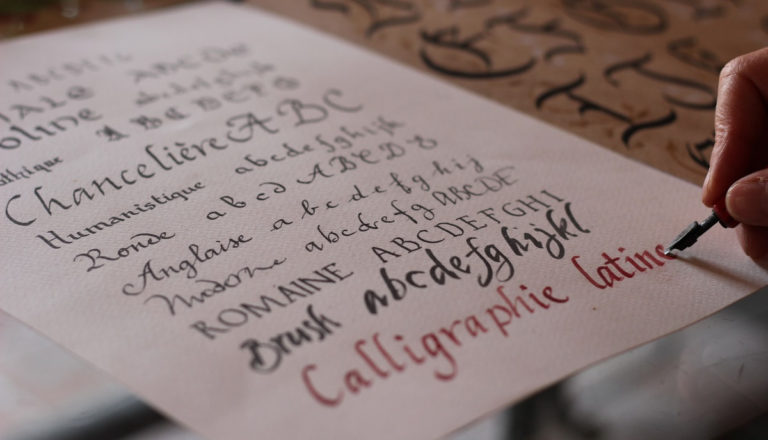 ABCDE
oline ABCDEFG
Chancelière ABC
Humanistique abcdefghijk
Ronde abcd ABCD
Anglaise abcdefghij
Moderne abcdefg ABCDE
ROMAINE ABCDEFGHI
Brush abcdefghijkl
Calligraphie latine